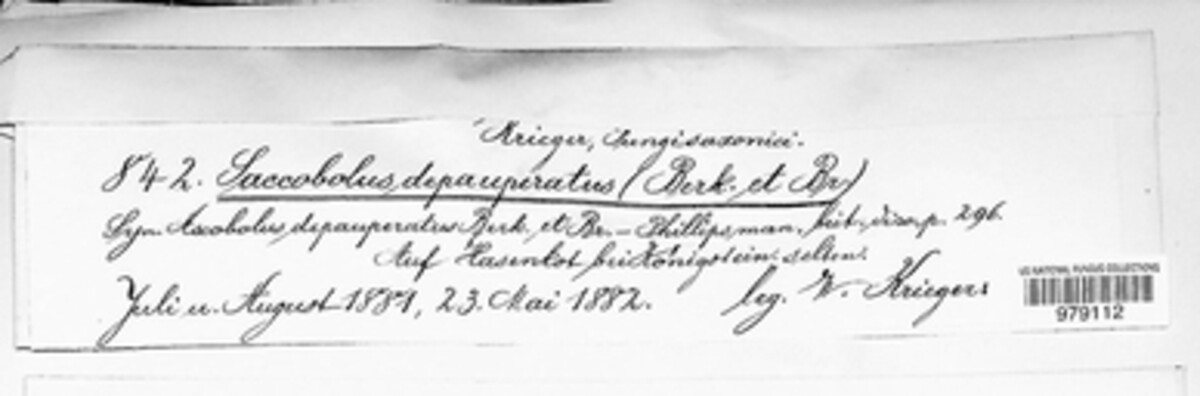 Krieger, fungi saxonici.
842. Saccobolus depauperatus (Berk. et Br.)
Syn. Ascobolus depauperatus Berk. et Br. – Phillips, man. brit. disc. p. 296.
Auf Hasenkot bei Königstein. selten.
Juli u. August 1881, 23. Mai 1882.
leg. W. Krieger.
US NATIONAL FUNGUS COLLECTIONS
979112